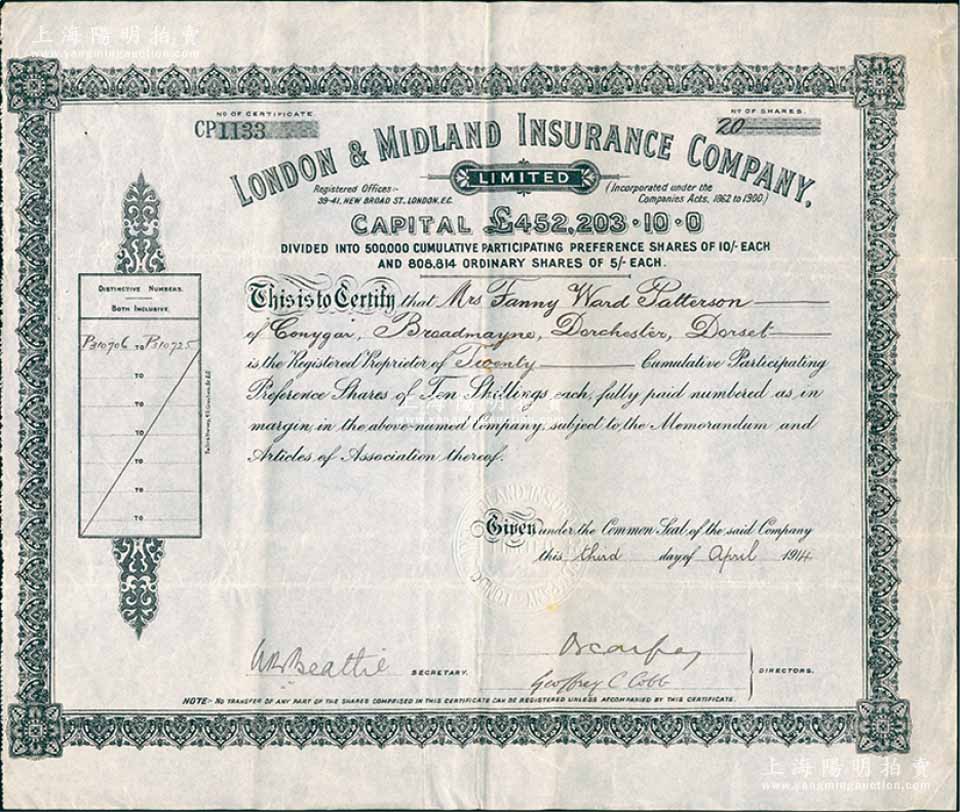 上海陽明拍賣
www.yangmingauction.com
NO OF CERTIFICATE.
CP1133
NO OF SHARES.
20
LONDON & MIDLAND INSURANCE COMPANY,
LIMITED
Registered Offices:-
39-41, NEW BROAD ST. LONDON, E.C.
(Incorporated under the
Companies Acts, 1862 to 1900.)
CAPITAL £452,203·10·0
DIVIDED INTO 500,000 CUMULATIVE PARTICIPATING PREFERENCE SHARES OF 10/- EACH
AND 808,814 ORDINARY SHARES OF 5/- EACH.
DISTINCTIVE NUMBERS.
BOTH INCLUSIVE.
P310706 TO P310725
TO
TO
TO
TO
TO
TO
This is to Certify that Mrs Fanny Ward Patterson
of Conygar, Broadmayne, Dorchester, Dorset
is the Registered Proprietor of Twenty Cumulative Participating
Preference Shares of Ten Shillings each, fully paid numbered as in
margin, in the above-named Company, subject to the Memorandum and
Articles of Association thereof.
上海陽明拍賣
www.yangmingauction.com
Given under the Common Seal of the said Company
this third day of April 1914
W Beattie SECRETARY.
Geoffrey C. Cobb
DIRECTORS.
NOTE:- NO TRANSFER OF ANY PART OF THE SHARES COMPRISED IN THIS CERTIFICATE CAN BE REGISTERED UNLESS ACCOMPANIED BY THIS CERTIFICATE.
上海陽明拍賣
www.yangmingauction.com